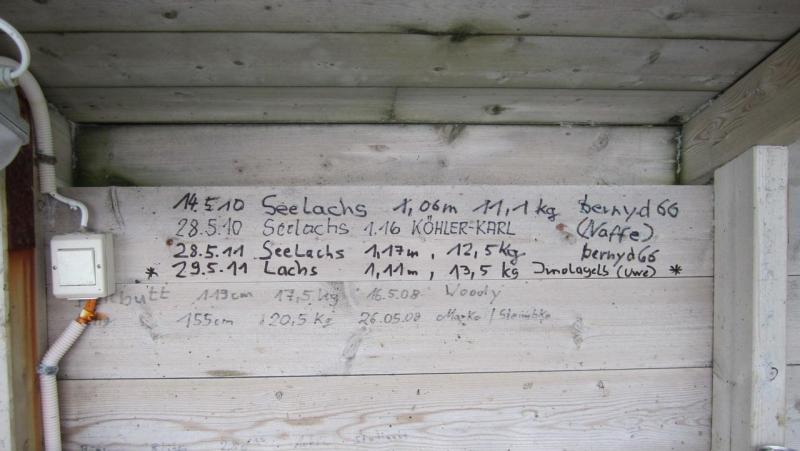 14.5.10 Seelachs 1,06m 11,1 kg bernyd66
28.5.10 Seelachs 1.16 KÖHLER-KARL (Naffe)
28.5.11 Seelachs 1,17m, 12,5kg bernyd66
* 29.5.11 Lachs 1,11m, 13,5 kg (Uwe) *
119cm 17,5 kg 16.5.08 Woody
155cm 20,5 kg 26.05.08 Marko /